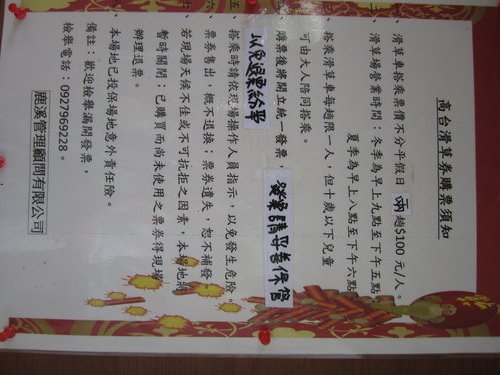 高台滑草券購票須知
、滑草車搭乘票價不分平假日兩趟$100元/人。
、滑草場營業時間：冬季為早上九點至下午五點。
夏季為早上八點至下午六點
、搭乘滑草車每趟限一人，但十歲以下兒童
可由大人陪同搭乘。
購票後將開立統一發票，發票請妥善保管
以免退票紛爭
五、搭乘時請依現場操作人員指示，以免發生危險。
六、票券售出，概不退換，票券遺失，恕不補發。
、若現場天候不佳或不可抗拒之因素，本場地將
暫時關閉；已購買而尚未使用之票券得現場
辦理退票。
、本場地已投保場地意外責任險。
備註：歡迎檢舉漏開發票，
檢舉電話：0927969228。
鹿溪管理顧問有限公司